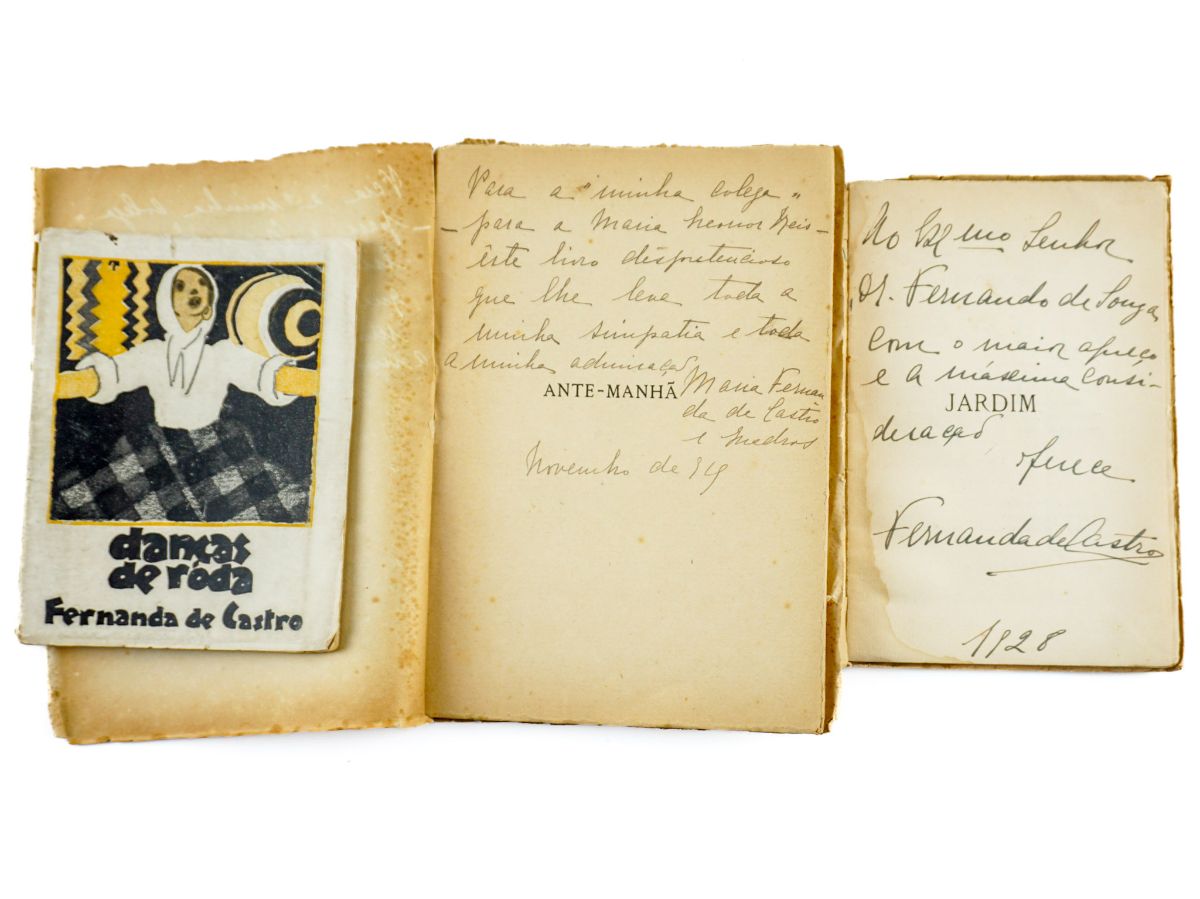 danças
de róda
Fernanda de Castro
Para a "minha colega"
— para a Maria Leonor Reis —
êste livro despretencioso
que lhe leve toda a
minha simpatia e toda
a minha admiração
ANTE-MANHÃ
Maria Fernan
da de Castro
e Quadros
Novembro de 919
Ao Exmo Senhor
Dr. Fernando de Souza
com o maior apreço
e a máxima consi-
JARDIM
deração
oferece
Fernanda de Castro
1928